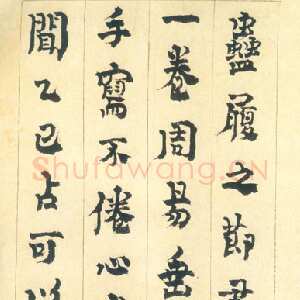 蠱履之節君
一卷周易垂
手寫不倦心
聞乙已占可以
Shufawang.CN